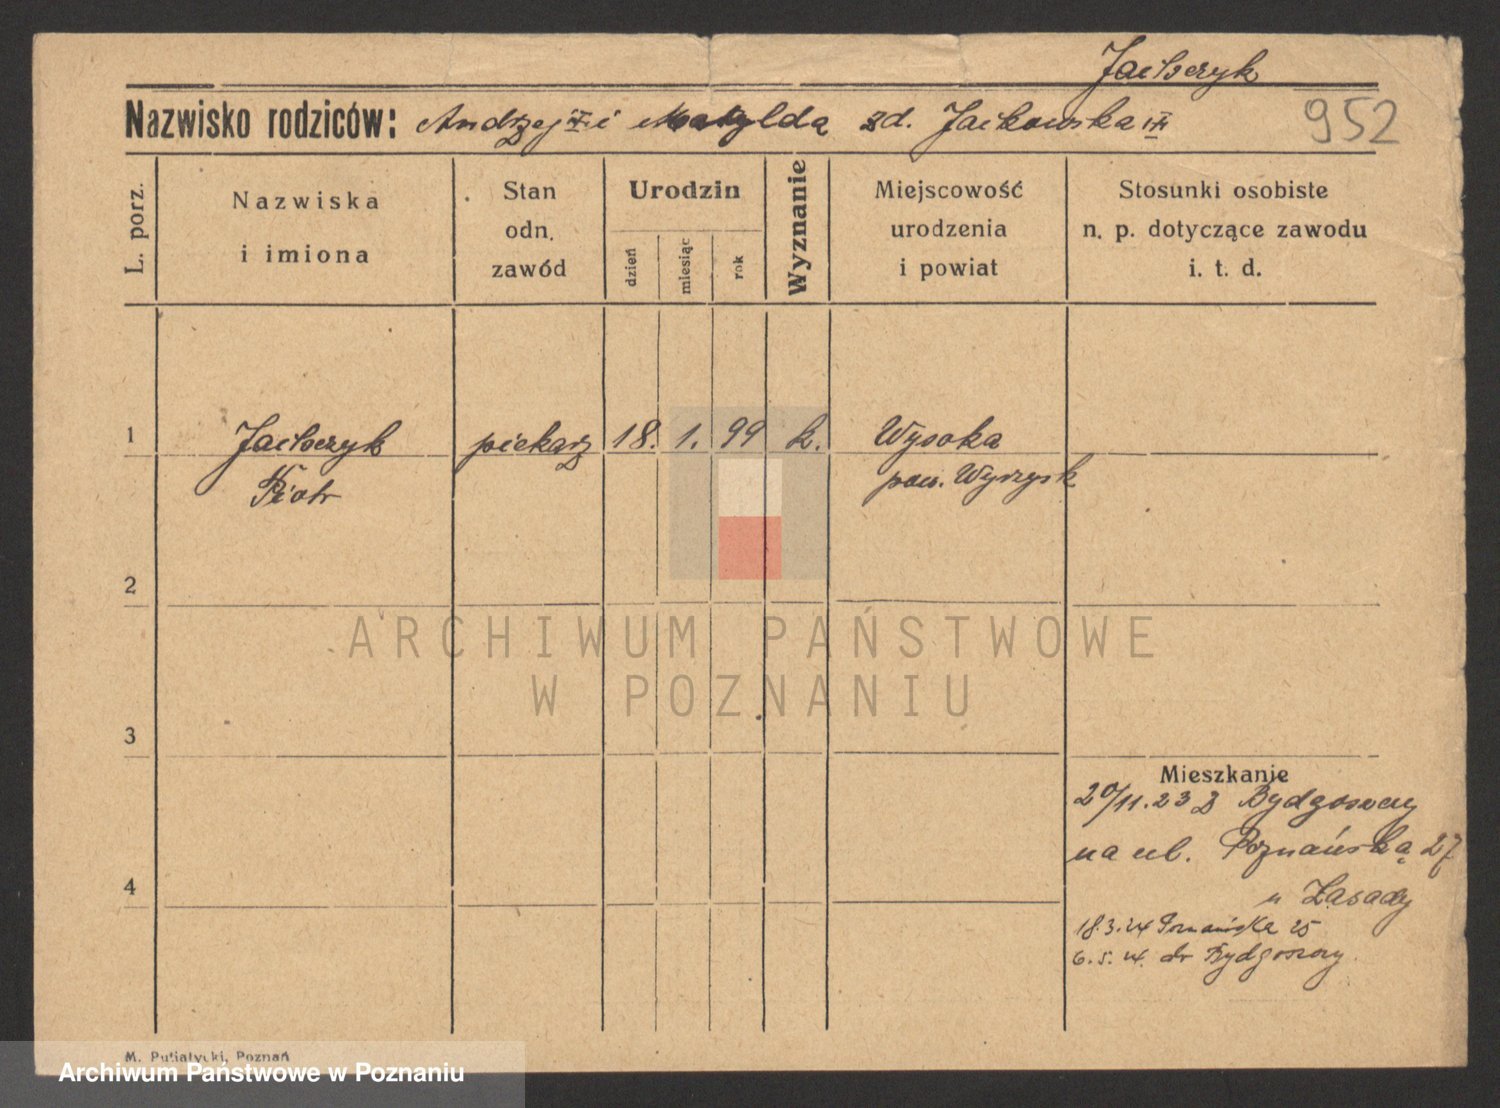 Jailerzyk
Nazwisko rodziców: Andrzej i Matylda zd. Jaikowska
952
L. porz.
Nazwiska
i imiona
Stan
odn.
zawód
Urodzin
dzień
miesiąc
rok
Wyznanie
Miejscowość
urodzenia
i powiat
Stosunki osobiste
n. p. dotyczące zawodu
i. t. d.
1 piekarz 18. 1. 99 k. Wysoka
Piotr pow. Wyrzysk
2
ARCHIWUM PAŃSTWOWE
W POZNANIU
3
Mieszkanie
20/11.23 z Bydgoszczy
na ul. Poznańską 27
4
u Zasady
18.3.24 Poznańska 25
6.5.24. do Bydgoszczy.
M. Putiatycki, Poznań
Archiwum Państwowe w Poznaniu